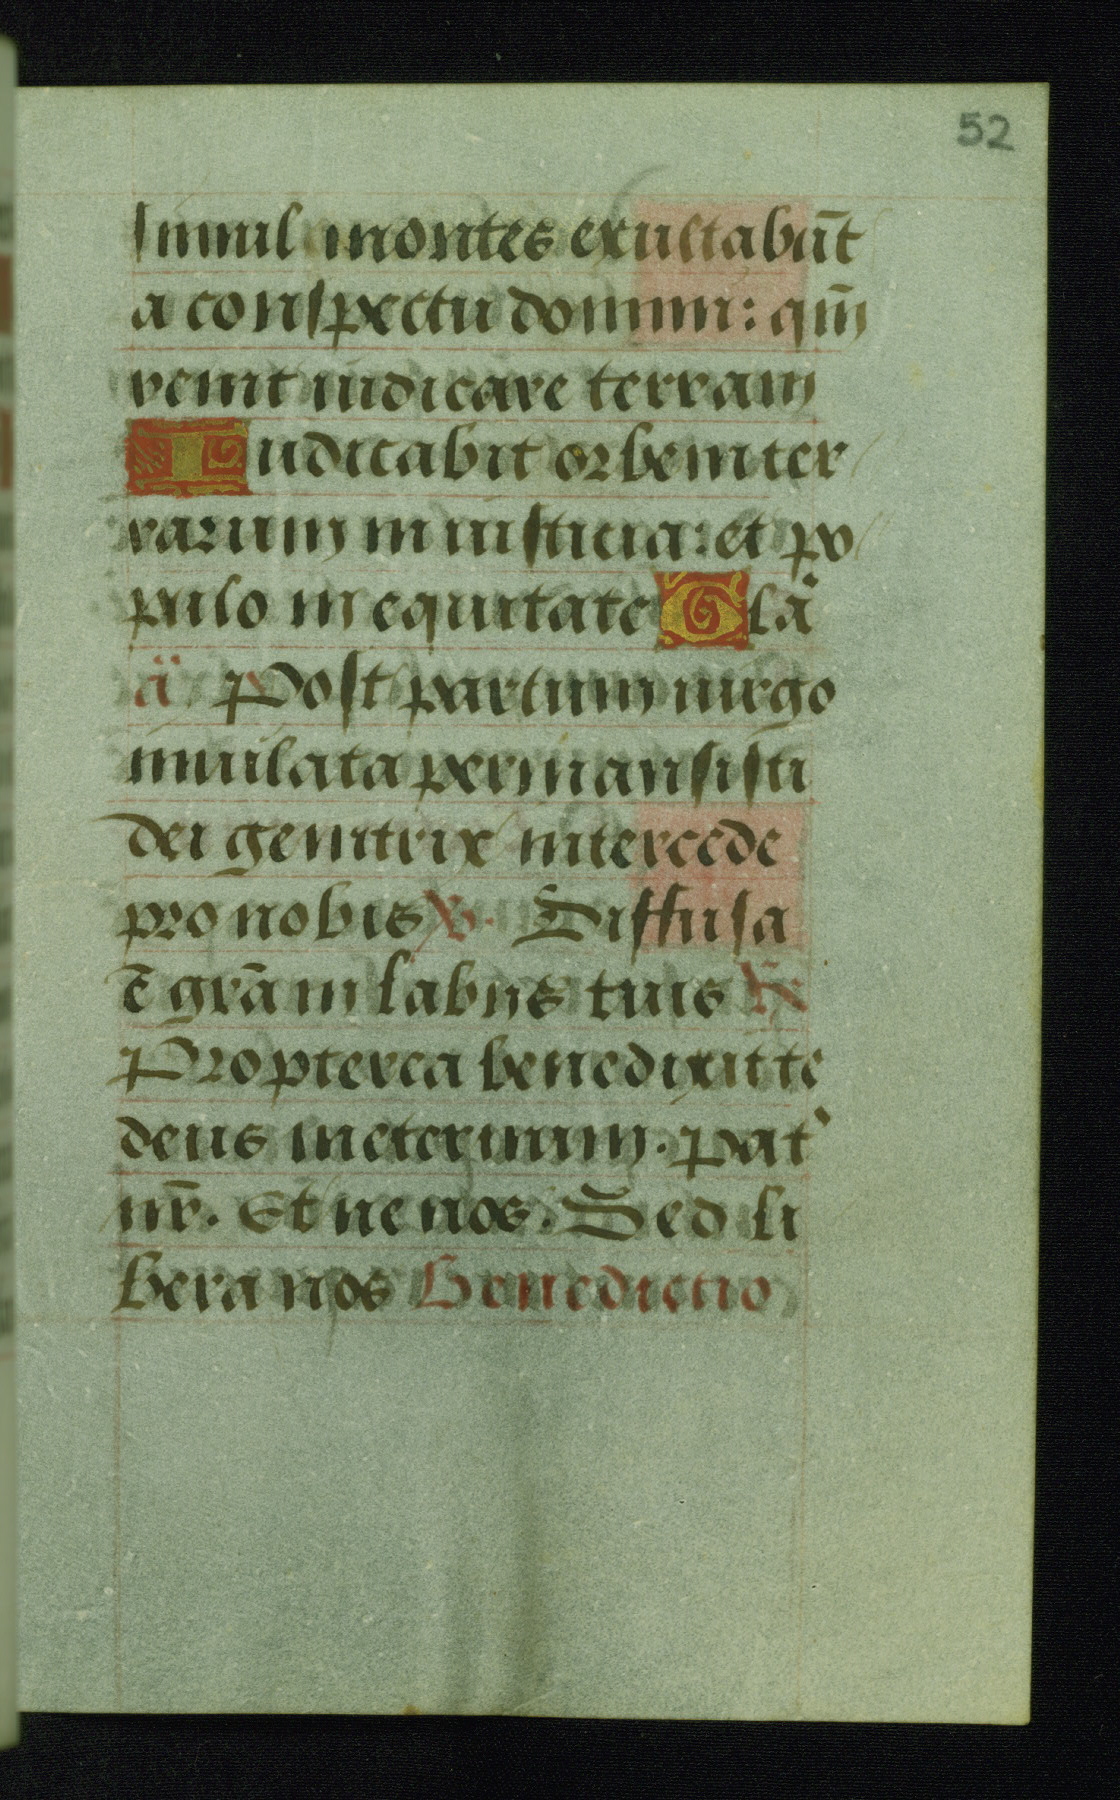 52
simul montes exultabūt
a conspectu domini: qm̄
venit iudicare terram
Iudicabit orbem ter
rarum in iusticia: et po
pulo in equitate Glā
ā Post partum uirgo
inuiolata permansisti
dei genitrix intercede
pro nobis ℣. Diffusa
ē grā in labiis tuis ℟
Propterea benedixit te
deus in eternum. pat
nr̄. Et ne nos. Sed li
bera nos Benedictio